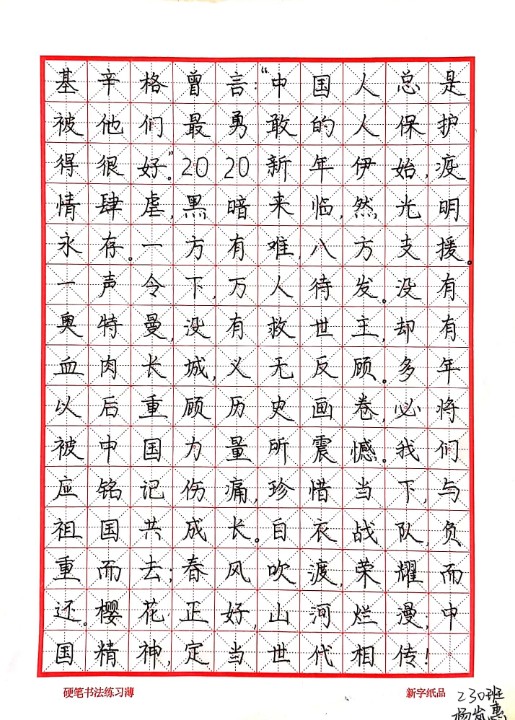 基辛格曾言：“中国人总是
被他们最勇敢的人保护
得很好。”2020新年伊始，疫
情肆虐，黑暗来临，然光明
永存。一方有难，八方支援。
一声令下，万人待发。没有
奥特曼，没有救世主，却有
血肉长城，义无反顾。多年
以后重顾历史画卷，必将
被中国力量所震憾。我们
应铭记伤痛，珍惜当下，与
祖国共成长。白衣战队，负
重而去；春风吹渡，荣耀而
还。樱花正好，山河烂漫，中
国精神，定当世代相传！
硬笔书法练习薄 新字纸品
230班